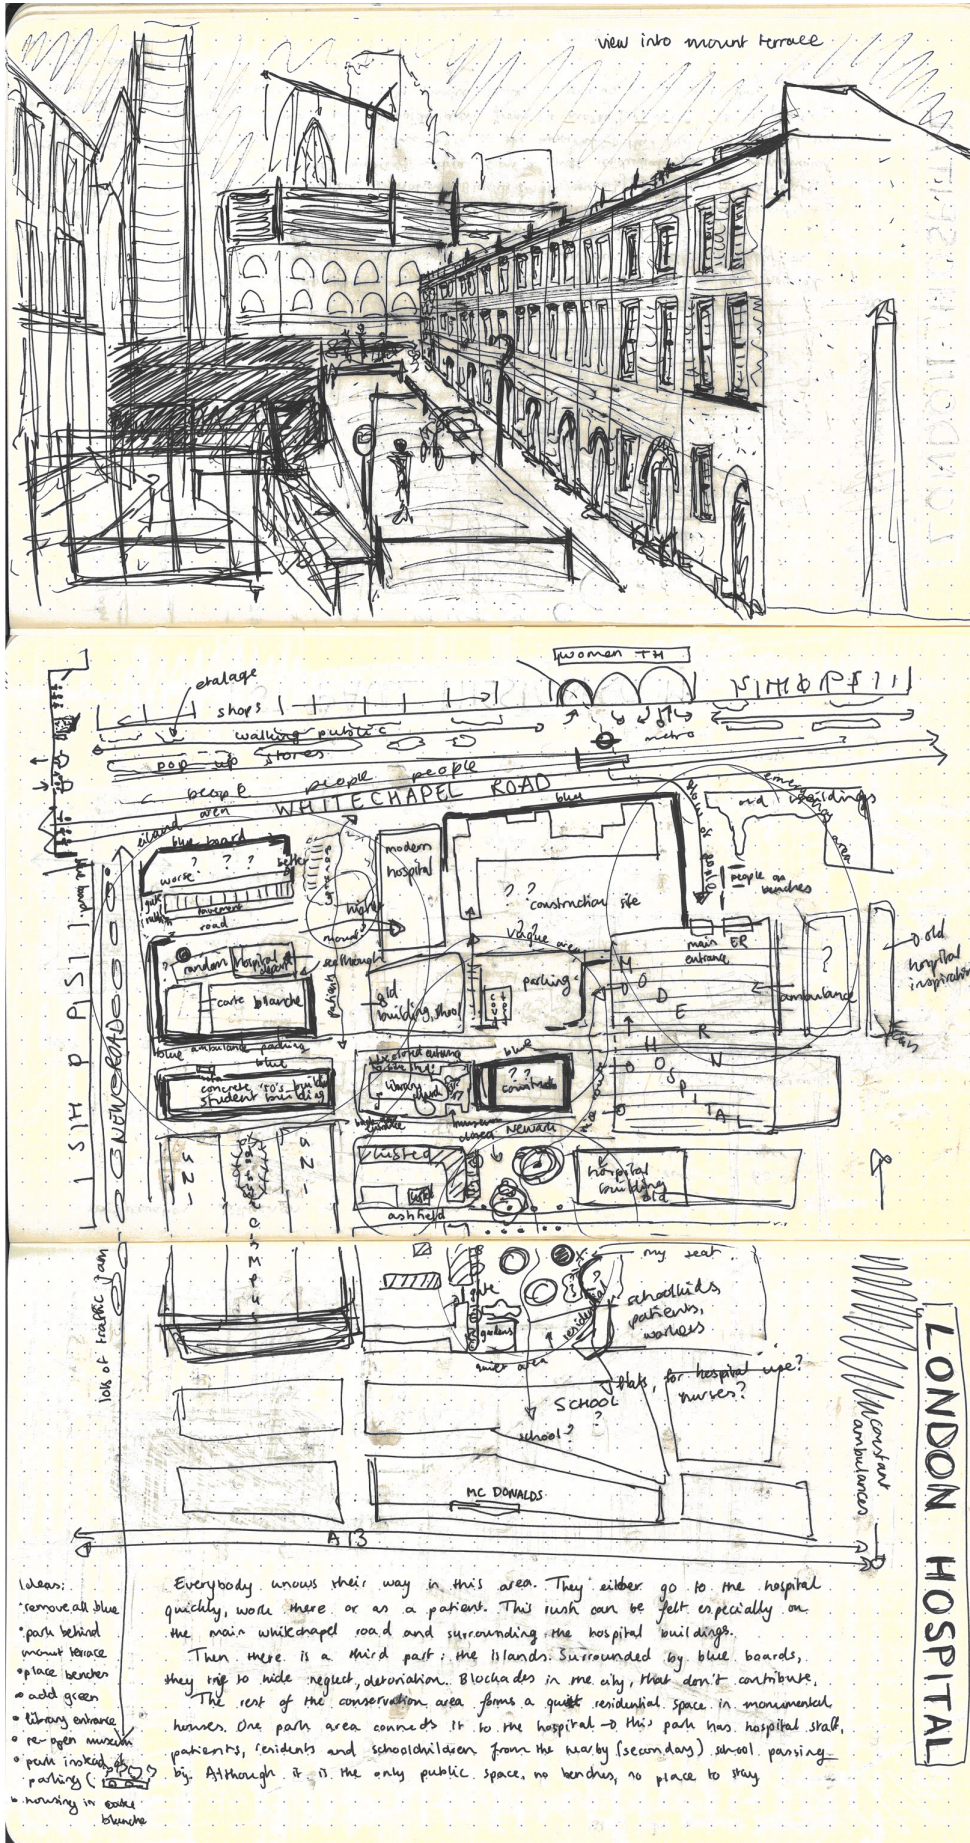 view into mount terrace
women TH
etalage
shops
SHOPS
walking public
metro
pop-up stores
people people people
WHITECHAPEL ROAD
blue
old buildings
emergency area
blue board
? ? ?
worse
better
modern
hospital
pavement
road
higher
mount
? ?
construction site
people on
benches
vague area
main
entrance
ER
?
old
hospital
inspiration
random
hospital
see through
carte blanche
patients
old
building, school
parking
ambulance
MODERN
HOSPITAL
blue ambulance parking
blue
concrete, 70's build
student building
library
blue
? ?
construction
entrance
museum
closed
NEWARK
SHOPS
NEW ROAD
listed
ashfield
hospital
building
old
lots of traffic jam
my seat
schoolkids,
patients,
workers
gate
gardens
residential
quiet area
flats, for hospital use?
nurses?
SCHOOL
?
school?
constant
ambulances
MC DONALDS
A13
LONDON HOSPITAL
Ideas:
• remove all blue
• park behind
mount terrace
• place benches
• add green
• library entrance
• re-open museum
• park instead of
parking (
• housing in carte
blanche
Everybody knows their way in this area. They either go to the hospital
quickly, work there or as a patient. This rush can be felt especially on
the main whitechapel road and surrounding the hospital buildings.
Then there is a third part: the Islands. Surrounded by blue boards,
they try to hide neglect, detoriation. Blockades in the city, that don't contribute.
The rest of the conservation area forms a quiet residential space in monumental
houses. One park area connects it to the hospital → this park has hospital staff,
patients, residents and schoolchildren from the nearby (secundary) school passing
by. Although it is the only public space, no benches, no place to stay